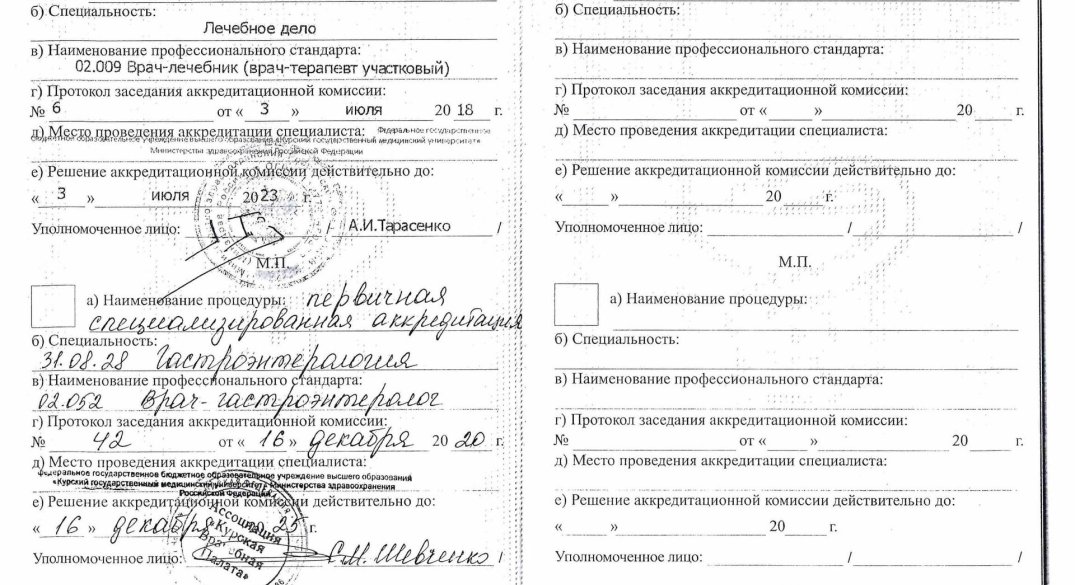 б) Специальность:
Лечебное дело
в) Наименование профессионального стандарта:
02.009 Врач-лечебник (врач-терапевт участковый)
г) Протокол заседания аккредитационной комиссии:
№ 6 от « 3 » июля 20 18 г.
д) Место проведения аккредитации специалиста: Федеральное государственное
бюджетное образовательное учреждение высшего образования «Курский государственный медицинский университет»
Министерства здравоохранения Российской Федерации
е) Решение аккредитационной комиссии действительно до:
« 3 » июля 2023 г.
Уполномоченное лицо: / А.И.Тарасенко /
М.П.
а) Наименование процедуры: первичная
специализированная аккредитация
б) Специальность:
31.08.28 Гастроэнтерология
в) Наименование профессионального стандарта:
02.052 Врач-гастроэнтеролог
г) Протокол заседания аккредитационной комиссии:
№ 42 от « 16 » декабря 20 20 г.
д) Место проведения аккредитации специалиста:
Федеральное государственное бюджетное образовательное учреждение высшего образования
«Курский государственный медицинский университет» Министерства здравоохранения
Российской Федерации
е) Решение аккредитационной комиссии действительно до:
« 16 » декабря 2025 г.
Ассоциация
«Курская
Врачебная
Палата»
Уполномоченное лицо: / С.М. Шевченко /
б) Специальность:
в) Наименование профессионального стандарта:
г) Протокол заседания аккредитационной комиссии:
№ от « » 20 г.
д) Место проведения аккредитации специалиста:
е) Решение аккредитационной комиссии действительно до:
« » 20 г.
Уполномоченное лицо: / /
М.П.
а) Наименование процедуры:
б) Специальность:
в) Наименование профессионального стандарта:
г) Протокол заседания аккредитационной комиссии:
№ от « » 20 г.
д) Место проведения аккредитации специалиста:
е) Решение аккредитационной комиссии действительно до:
« » 20 г.
Уполномоченное лицо: / /